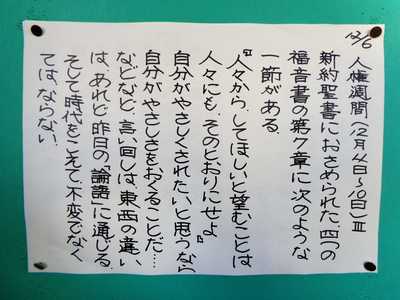 12/6
人権週間(12月4日~10日)Ⅲ
新約聖書におさめられた四つの
福音書の第7章に次のような
一節がある。
『人々からしてほしいと望むことは
人々にも、そのとおりにせよ』
自分がやさしくされたいと思うなら
自分がやさしさをおくることだ…
などなど、言い回しは、東西の違い
は、あれど昨日の「論語」に通じる。
そして時代をこえて、不変でなく
ては、ならない。